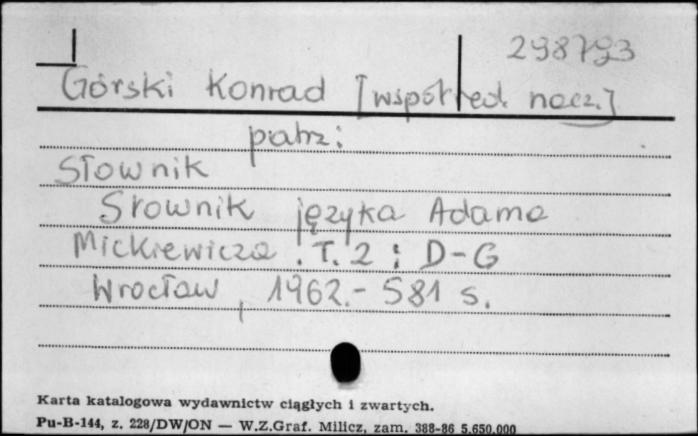 298793
Górski Konrad [współred. nacz.]
patrz:
Słownik
Słownik języka Adama
Mickiewicza. T. 2 : D-G
Wrocław, 1962.- 581 s.
Karta katalogowa wydawnictw ciągłych i zwartych.
Pu-B-144, z. 228/DW/ON — W.Z.Graf. Milicz, zam. 388-86 5.650.000